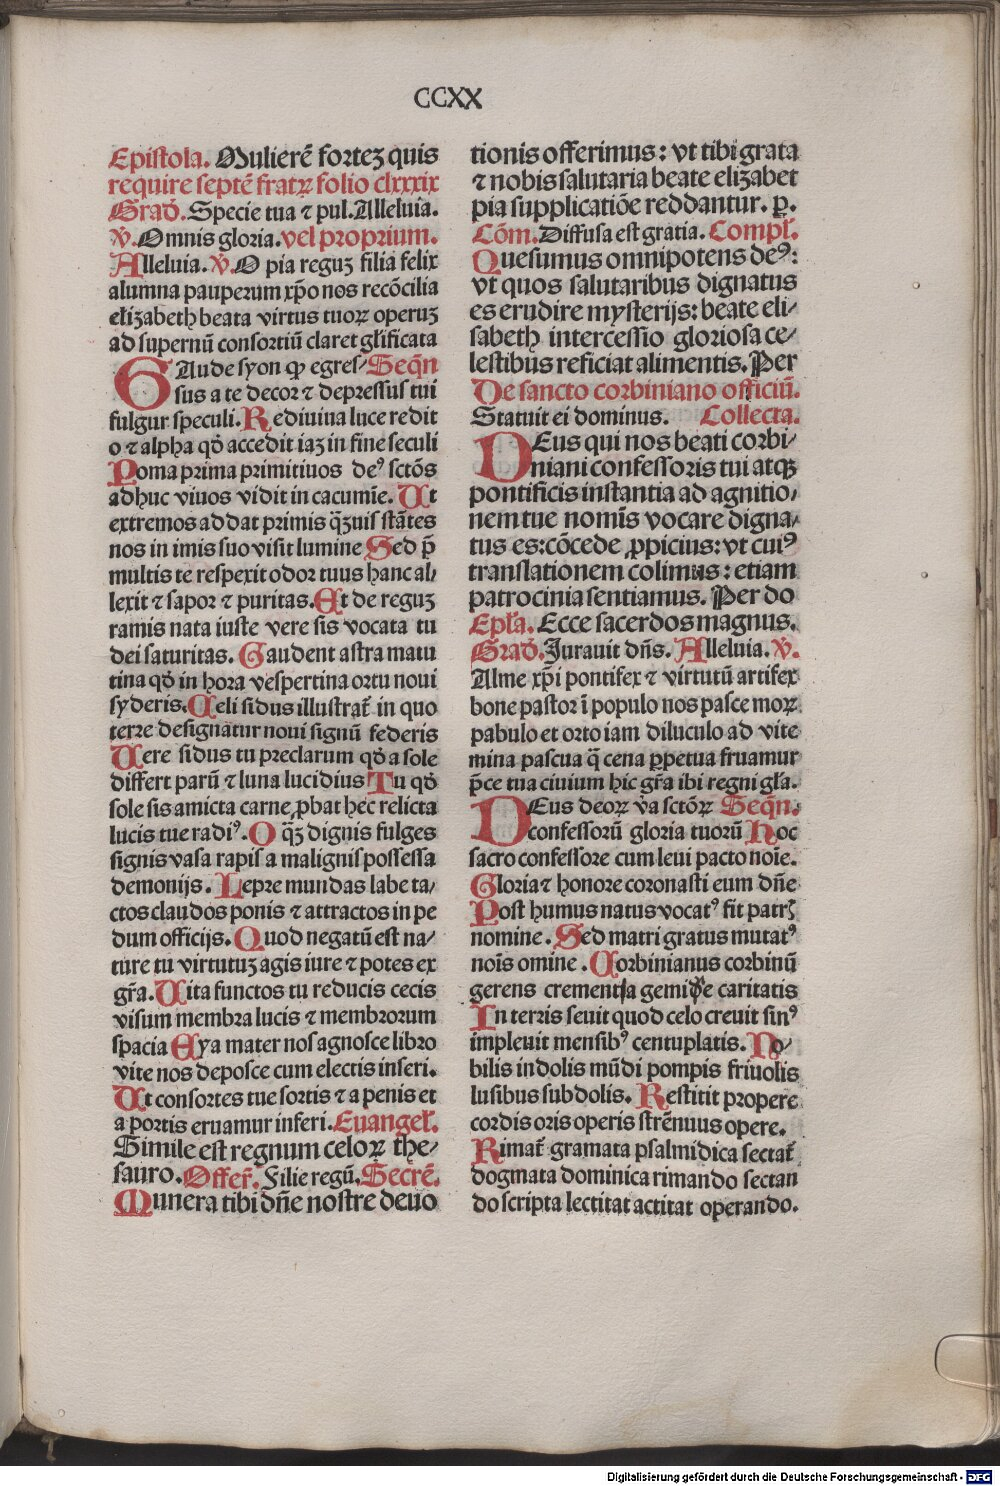 CCXX
Epistola. Mulierē fortez quis
require septē fratꝝ folio clxxxix
Gradꝰ. Specie tua ⁊ pul. Alleluia.
℣. Omnis gloria. vel proprium.
Alleluia. ℣. O pia reguz filia felix
alumna pauperum xp̄o nos recōcilia
elizabeth beata virtus tuoꝝ operuz
ad supernū consortiū claret glificata
GAude syon ꝙ egres⸗ Seqn̄
sus a te decor ⁊ depressus tui
fulgur speculi. Rediuiua luce redit
o ⁊ alpha qđ accedit iaz in fine seculi
Poma prima primitiuos deꝰ sctōs
adhuc viuos vidit in cacumīe. Ut
extremos addat primis q̄zuis stātes
nos in imis suo visit lumine Sed p̄
multis te respexit odor tuus hanc al⸗
lexit ⁊ sapor ⁊ puritas. Et de reguz
ramis nata iuste vere sis vocata tu
dei saturitas. Gaudent astra matu
tina qđ in hora vespertina ortu noui
syderis. Celi sidus illustrat̄ in quo
terre designatur noui signū federis
Uere sidus tu preclarum qđ a sole
differt parū ⁊ luna lucidius Tu qđ
sole sis amicta carne ꝓbat hec relicta
lucis tue radiꝰ. O q̄z dignis fulges
signis vasa rapis a malignis possessa
demonijs. Lepre mundas labe ta⸗
ctos claudos ponis ⁊ attractos in pe
dum officijs. Quod negatū est na⸗
ture tu virtutuz agis iure ⁊ potes ex
gr̄a. Uita functos tu reducis cecis
visum membra lucis ⁊ membrorum
spacia Eya mater nos agnosce libro
vite nos deposce cum electis inseri.
Ut consortes tue sortis ⁊ a penis et
a portis eruamur inferi. Euangel̄.
Simile est regnum celoꝝ the⸗
sauro. Offer̄. Filie regū. Secrē.
Munera tibi dn̄e nostre deuo
tionis offerimus: vt tibi grata
⁊ nobis salutaria beate elizabet
pia supplicatiōe reddantur. p̲.
Cōm. Diffusa est gratia. Compl̄.
Quesumus omnipotens deꝰ:
vt quos salutaribus dignatus
es erudire mysterijs: beate eli⸗
sabeth intercessio gloriosa ce⸗
lestibus reficiat alimentis. Per
De sancto corbiniano officiū.
Statuit ei dominus. Collecta.
DEus qui nos beati corbi⸗
niani confessoris tui atqꝫ
pontificis instantia ad agnitio⸗
nem tue nomīs vocare digna⸗
tus es: cōcede ꝓpicius: vt cuiꝰ
translationem colimus: etiam
patrocinia sentiamus. Per do
Epl̄a. Ecce sacerdos magnus.
Gradꝰ. Jurauit dn̄s. Alleluia. ℣.
Alme xp̄i pontifex ⁊ virtutū artifex
bone pastor ī populo nos pasce moꝝ
pabulo et orto iam diluculo ad vite
mina pascua q̄ cena ꝑpetua fruamur
p̄ce tua ciuium hic gr̄a ibi regni gl̄a.
DEus deoꝝ v̄a sctōꝝ Seqn̄.
confessorū gloria tuorū Hoc
sacro confessore cum leui pacto noīe.
Gloria ⁊ honore coronasti eum dn̄e
Post humus natus vocatꝰ fit patrꝭ
nomine. Sed matri gratus mutatꝰ
noīs omine. Corbinianus corbinū
gerens crementia gemine caritatis
In terris seuit quod celo creuit sinꝰ
impleuit mensibꝰ centuplatis. No⸗
bilis indolis mūdi pompis friuolis
lusibus subdolis. Restitit propere
cordis oris operis strēnuus opere.
Rimat̄ gramata psalmidica sectat̄
dogmata dominica rimando sectan
do scripta lectitat actitat operando.
Digitalisierung gefördert durch die Deutsche Forschungsgemeinschaft - DFG